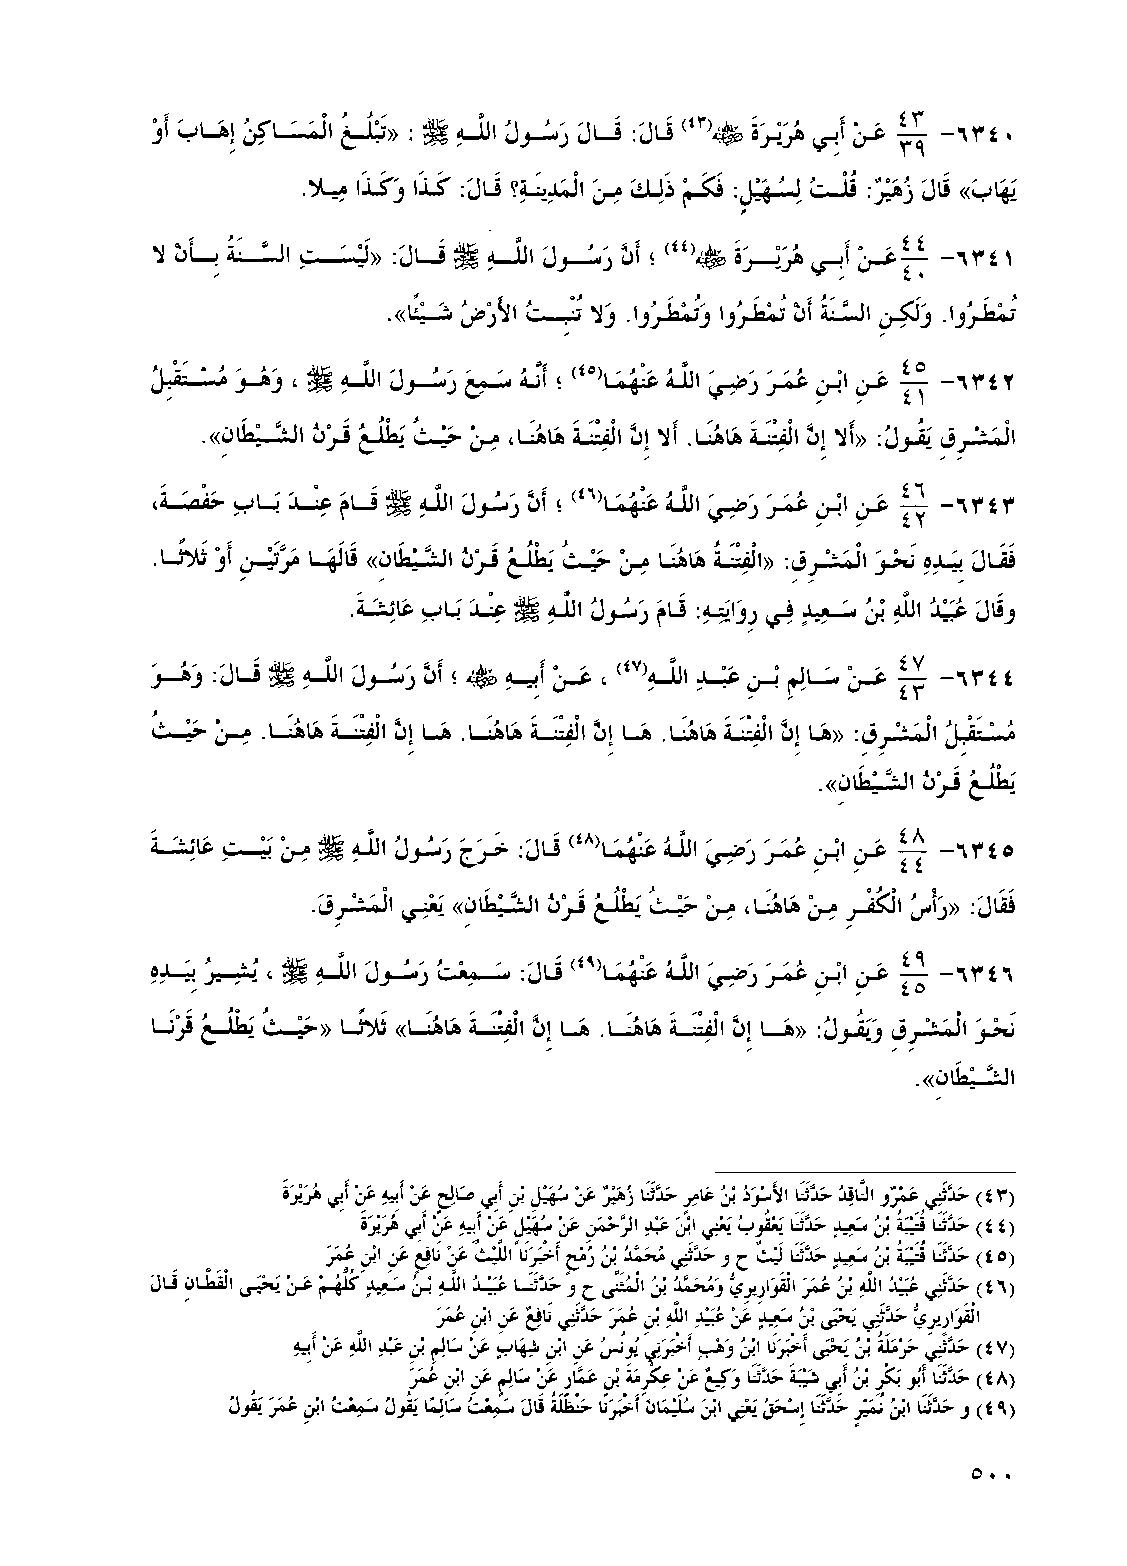 ٦٣٤٠- ٤٣/٣٩ عَنْ أَبِي هُرَيْرَةَ ﷺ(٤٣) قَالَ: قَالَ رَسُولُ اللَّهِ ﷺ : «تَبْلُغُ الْمَسَاكِنُ إِهَابَ أَوْ
يَهَابَ» قَالَ زُهَيْرٌ: قُلْتُ لِسُهَيْلٍ: فَكَمْ ذَلِكَ مِنَ الْمَدِينَةِ؟ قَالَ: كَذَا وَكَذَا مِيلا.
٦٣٤١- ٤٤/٤٠ عَنْ أَبِي هُرَيْرَةَ ﷺ(٤٤) ؛ أَنَّ رَسُولَ اللَّهِ ﷺ قَالَ: «لَيْسَتِ السَّنَةُ بِأَنْ لا
تُمْطَرُوا. وَلَكِنِ السَّنَةُ أَنْ تُمْطَرُوا وَتُمْطَرُوا. وَلا تُنْبِتُ الأَرْضُ شَيْئًا».
٦٣٤٢- ٤٥/٤١ عَنِ ابْنِ عُمَرَ رَضِيَ اللَّهُ عَنْهُمَا(٤٥) ؛ أَنَّهُ سَمِعَ رَسُولَ اللَّهِ ﷺ ، وَهُوَ مُسْتَقْبِلُ
الْمَشْرِقِ يَقُولُ: «أَلا إِنَّ الْفِتْنَةَ هَاهُنَا. أَلا إِنَّ الْفِتْنَةَ هَاهُنَا، مِنْ حَيْثُ يَطْلُعُ قَرْنُ الشَّيْطَانِ».
٦٣٤٣- ٤٦/٤٢ عَنِ ابْنِ عُمَرَ رَضِيَ اللَّهُ عَنْهُمَا(٤٦) ؛ أَنَّ رَسُولَ اللَّهِ ﷺ قَامَ عِنْدَ بَابِ حَفْصَةَ،
فَقَالَ بِيَدِهِ نَحْوَ الْمَشْرِقِ: «الْفِتْنَةُ هَاهُنَا مِنْ حَيْثُ يَطْلُعُ قَرْنُ الشَّيْطَانِ» قَالَهَا مَرَّتَيْنِ أَوْ ثَلاثًا.
وقَالَ عُبَيْدُ اللَّهِ بْنُ سَعِيدٍ فِي رِوَايَتِهِ: قَامَ رَسُولُ اللَّهِ ﷺ عِنْدَ بَابِ عَائِشَةَ.
٦٣٤٤- ٤٧/٤٣ عَنْ سَالِمِ بْنِ عَبْدِ اللَّهِ(٤٧) ، عَنْ أَبِيهِ ﷺ ؛ أَنَّ رَسُولَ اللَّهِ ﷺ قَالَ: وَهُوَ
مُسْتَقْبِلُ الْمَشْرِقِ: «هَا إِنَّ الْفِتْنَةَ هَاهُنَا. هَا إِنَّ الْفِتْنَةَ هَاهُنَا. هَا إِنَّ الْفِتْنَةَ هَاهُنَا. مِنْ حَيْثُ
يَطْلُعُ قَرْنُ الشَّيْطَانِ».
٦٣٤٥- ٤٨/٤٤ عَنِ ابْنِ عُمَرَ رَضِيَ اللَّهُ عَنْهُمَا(٤٨) قَالَ: خَرَجَ رَسُولُ اللَّهِ ﷺ مِنْ بَيْتِ عَائِشَةَ
فَقَالَ: «رَأْسُ الْكُفْرِ مِنْ هَاهُنَا، مِنْ حَيْثُ يَطْلُعُ قَرْنُ الشَّيْطَانِ» يَعْنِي الْمَشْرِقَ.
٦٣٤٦- ٤٩/٤٥ عَنِ ابْنِ عُمَرَ رَضِيَ اللَّهُ عَنْهُمَا(٤٩) قَالَ: سَمِعْتُ رَسُولَ اللَّهِ ﷺ ، يُشِيرُ بِيَدِهِ
نَحْوَ الْمَشْرِقِ وَيَقُولُ: «هَا إِنَّ الْفِتْنَةَ هَاهُنَا. هَا إِنَّ الْفِتْنَةَ هَاهُنَا» ثَلاثًا «حَيْثُ يَطْلُعُ قَرْنَا
الشَّيْطَانِ».
(٤٣) حَدَّثَنِي عَمْرٌو النَّاقِدُ حَدَّثَنَا الأَسْوَدُ بْنُ عَامِرٍ حَدَّثَنَا زُهَيْرٌ عَنْ سُهَيْلِ بْنِ أَبِي صَالِحٍ عَنْ أَبِيهِ عَنْ أَبِي هُرَيْرَةَ
(٤٤) حَدَّثَنَا قُتَيْبَةُ بْنُ سَعِيدٍ حَدَّثَنَا يَعْقُوبُ يَعْنِي ابْنَ عَبْدِ الرَّحْمَنِ عَنْ سُهَيْلٍ عَنْ أَبِيهِ عَنْ أَبِي هُرَيْرَةَ
(٤٥) حَدَّثَنَا قُتَيْبَةُ بْنُ سَعِيدٍ حَدَّثَنَا لَيْثٌ ح و حَدَّثَنِي مُحَمَّدُ بْنُ رُمْحٍ أَخْبَرَنَا اللَّيْثُ عَنْ نَافِعٍ عَنِ ابْنِ عُمَرَ
(٤٦) حَدَّثَنِي عُبَيْدُ اللَّهِ بْنُ عُمَرَ الْقَوَارِيرِيُّ وَمُحَمَّدُ بْنُ الْمُثَنَّى ح و حَدَّثَنَا عُبَيْدُ اللَّهِ بْنُ سَعِيدٍ كُلُّهُمْ عَنْ يَحْيَى الْقَطَّانِ قَالَ
الْقَوَارِيرِيُّ حَدَّثَنِي يَحْيَى بْنُ سَعِيدٍ عَنْ عُبَيْدِ اللَّهِ بْنِ عُمَرَ حَدَّثَنِي نَافِعٌ عَنِ ابْنِ عُمَرَ
(٤٧) حَدَّثَنِي حَرْمَلَةُ بْنُ يَحْيَى أَخْبَرَنَا ابْنُ وَهْبٍ أَخْبَرَنِي يُونُسُ عَنِ ابْنِ شِهَابٍ عَنْ سَالِمِ بْنِ عَبْدِ اللَّهِ عَنْ أَبِيهِ
(٤٨) حَدَّثَنَا أَبُو بَكْرِ بْنُ أَبِي شَيْبَةَ حَدَّثَنَا وَكِيعٌ عَنْ عِكْرِمَةَ بْنِ عَمَّارٍ عَنْ سَالِمٍ عَنِ ابْنِ عُمَرَ
(٤٩) و حَدَّثَنَا ابْنُ نُمَيْرٍ حَدَّثَنَا إِسْحَقُ يَعْنِي ابْنَ سُلَيْمَانَ أَخْبَرَنَا حَنْظَلَةُ قَالَ سَمِعْتُ سَالِمًا يَقُولُ سَمِعْتُ ابْنَ عُمَرَ يَقُولُ
٥٠٠